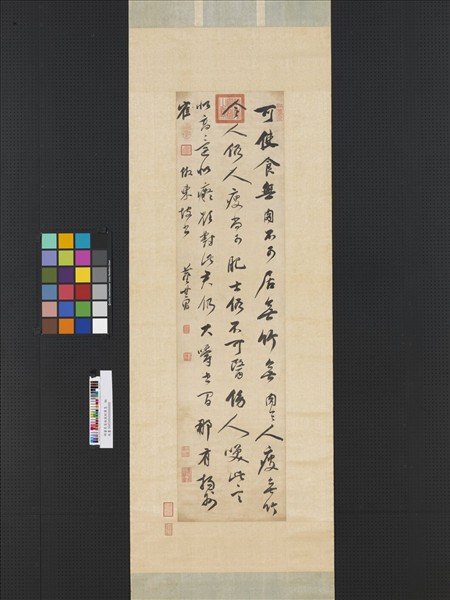 可使食無肉不可居無竹無肉令人瘦無竹
令人俗人瘦尚可肥士俗不可醫傍人笑此言
似高還似癡若對此君仍大嚼世間那有揚州
鶴 倣東坡書 董其昌